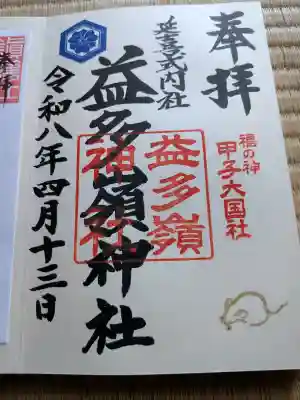 奉拝
延喜式内社
福の神
甲子大国社
益多嶺神社
益多嶺
神社
令和八年四月十三日